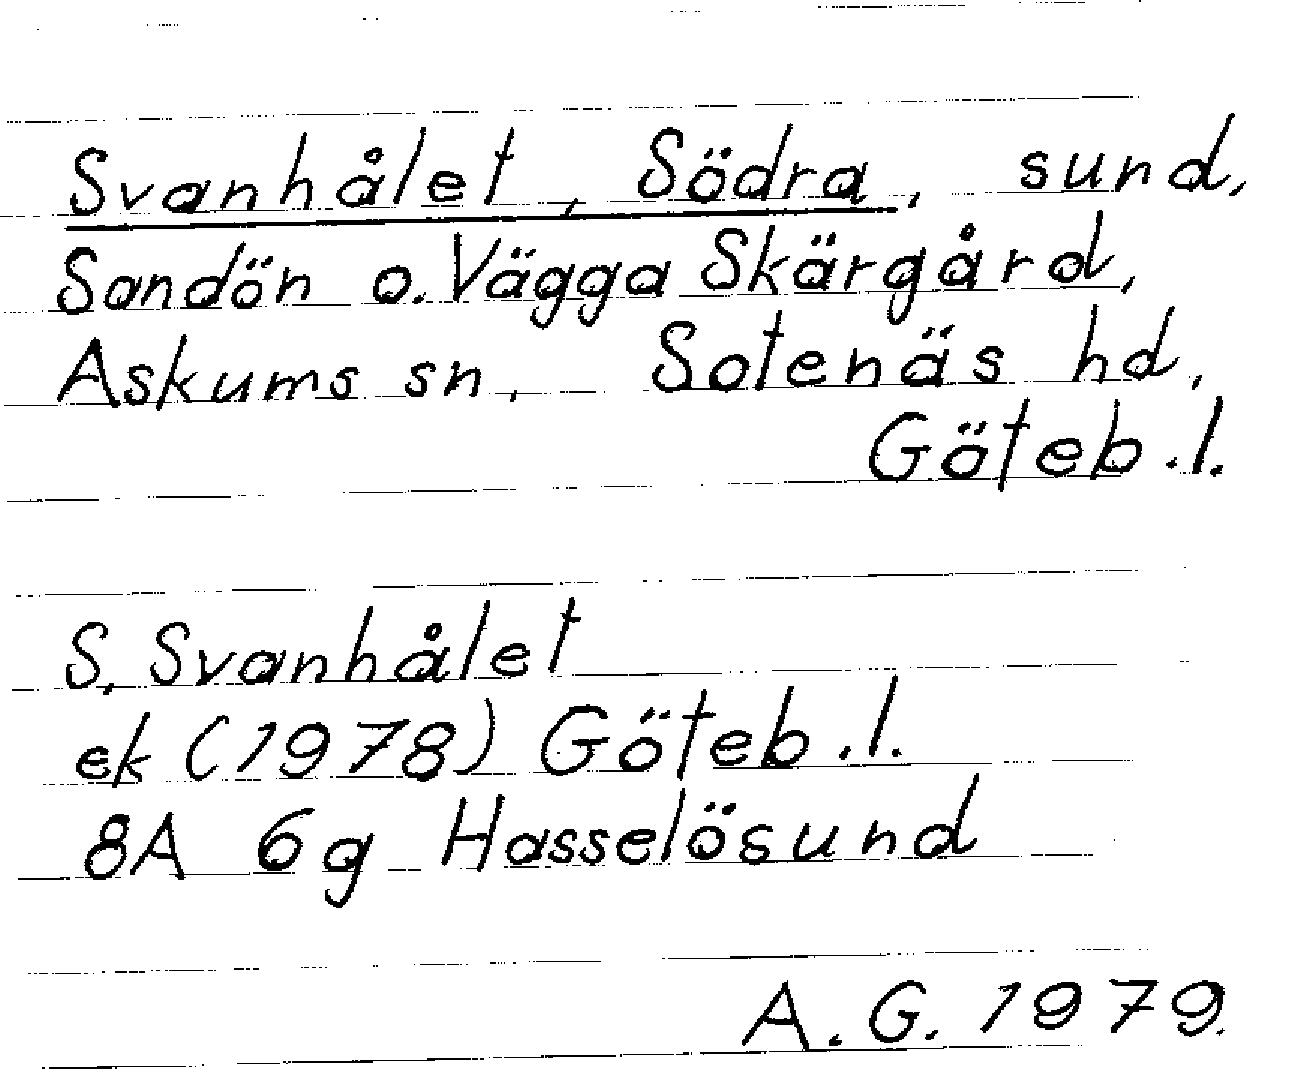 Svanhålet, Södra, sund,
Sandön o. Vägga Skärgård,
Askums sn, Sotenäs hd,
Göteb.l.
S. Svanhålet
ek (1978) Göteb.l.
8A 6g Hasselösund
A.G. 1979.